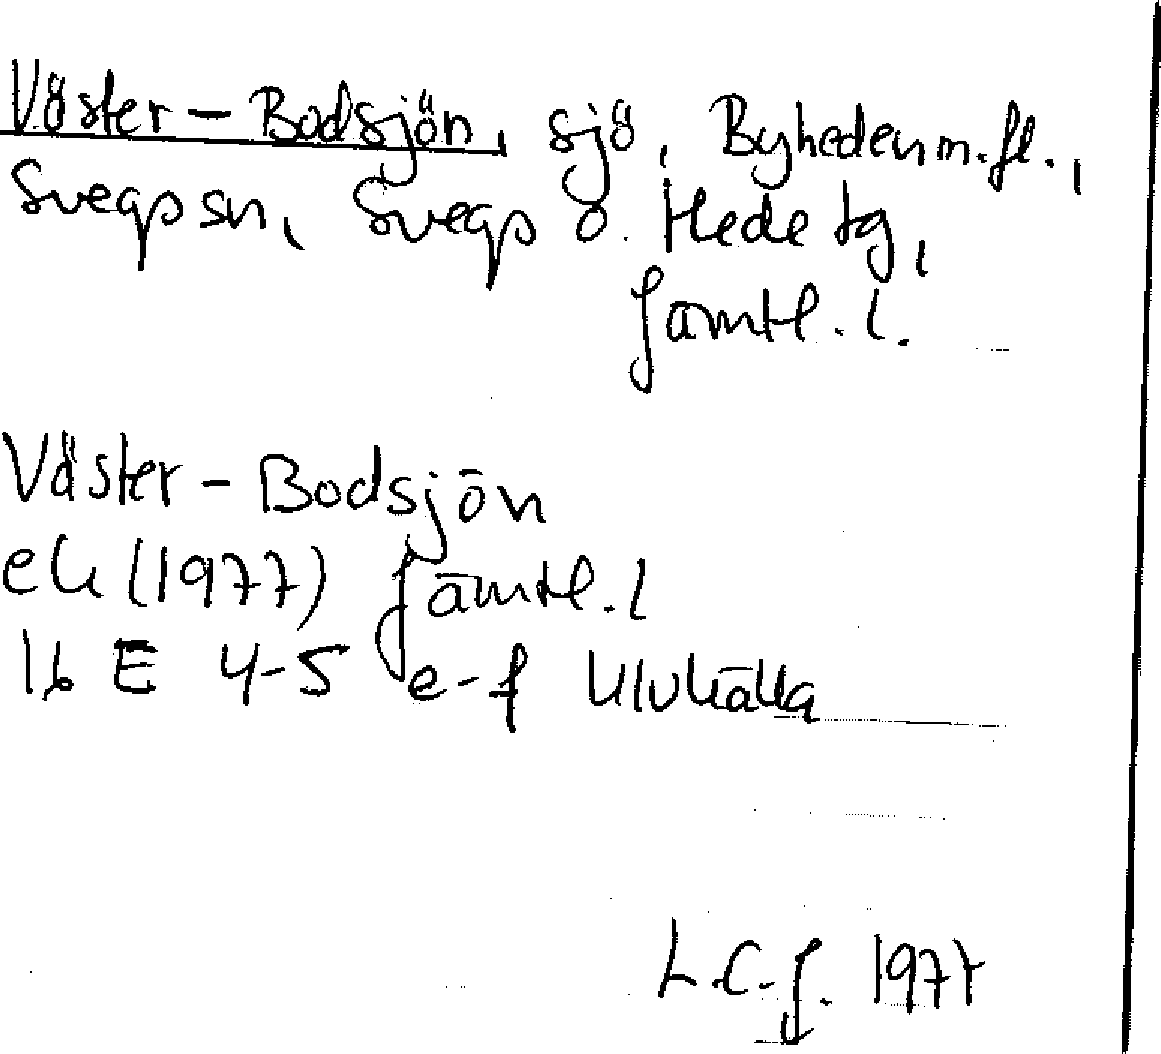 Väster-Bodsjön, sjö, Byheden m.fl.,
Svegs sn, Svegs o. Hede tg,
Jämtl. l.
Väster-Bodsjön
ek (1977) Jämtl. l
16 E 4-5 e-f Ulvkälla
L.C.J. 1977